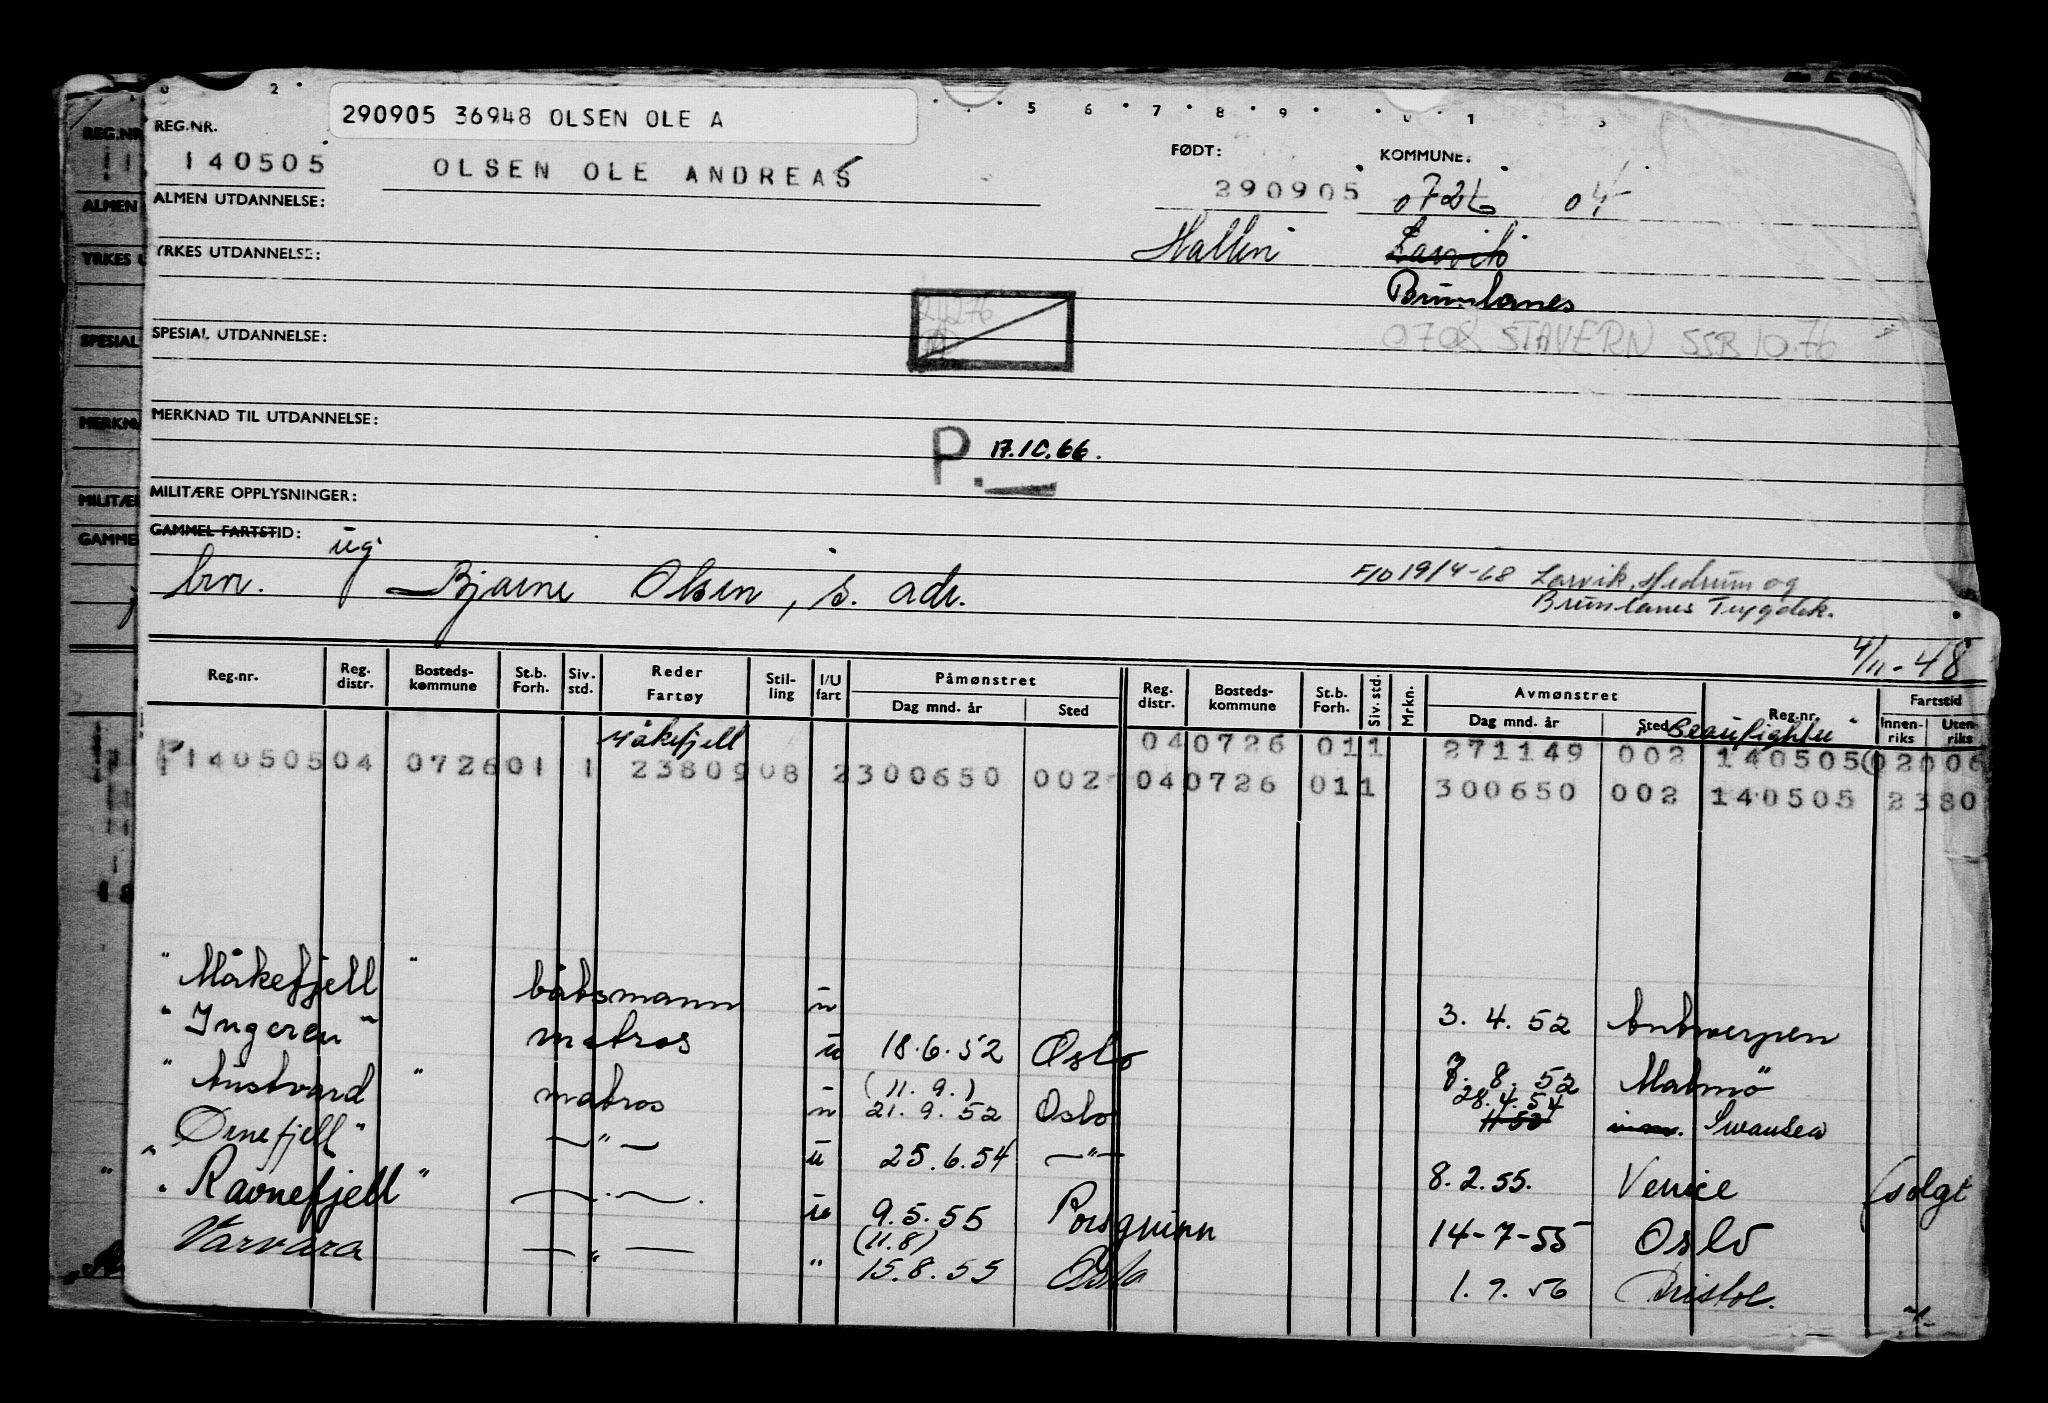 290905 36948 OLSEN OLE A
5 6 7 8 9
REG.NR. FØDT: KOMMUNE:
140505 OLSEN OLE ANDREAS 290905 0726 04
ALMEN UTDANNELSE:
Hallen Larvik
YRKES UTDANNELSE:
Brunlanes
211276
SPESIAL UTDANNELSE: 0708 STAVERN SSB 10.76
MERKNAD TIL UTDANNELSE:
P. 17.10.66.
MILITÆRE OPPLYSNINGER:
GAMMEL FARTSTID: ug
brr. Bjarne Olsen, s. adr. F/O 19/4-68 Larvik, Hedrum og
Brunlanes Trygdek.
4/11-48
Reg.nr. Reg. distr. Bosteds-kommune St.b. Forh. Siv. std. Reder Fartøy Stil-ling I/U fart Påmønstret Dag mnd. år Sted Reg. distr. Bosteds-kommune St.b. Forh. Siv. std. Mrkn. Avmønstret Dag mnd. år Sted Reg.nr. Fartstid Innen-riks Uten riks
Måkefjell "Beaufighter"
040726 011 271149 002 140505 02006
140505 04 0726 01 1 23809 08 2 300650 002 040726 011 300650 002 140505 2380
"Måkefjell" båtsmann u 3.4.52 Antwerpen
"Ingeren" matros u 18.6.52 Oslo 7.8.52 Malmø
"Austvard" matros u (11.9.) 21.9.52 Oslo 28.4.54 Swansea
"Ørnefjell" —"— u 25.6.54 —"— 8.2.55. Venice (solgt
"Ravnefjell" —"— u 9.5.55 Porsgrunn 14-7-55 Oslo
"Varvara —"— " (11.8) 15.8.55 Oslo 1.9.56 Bristol.